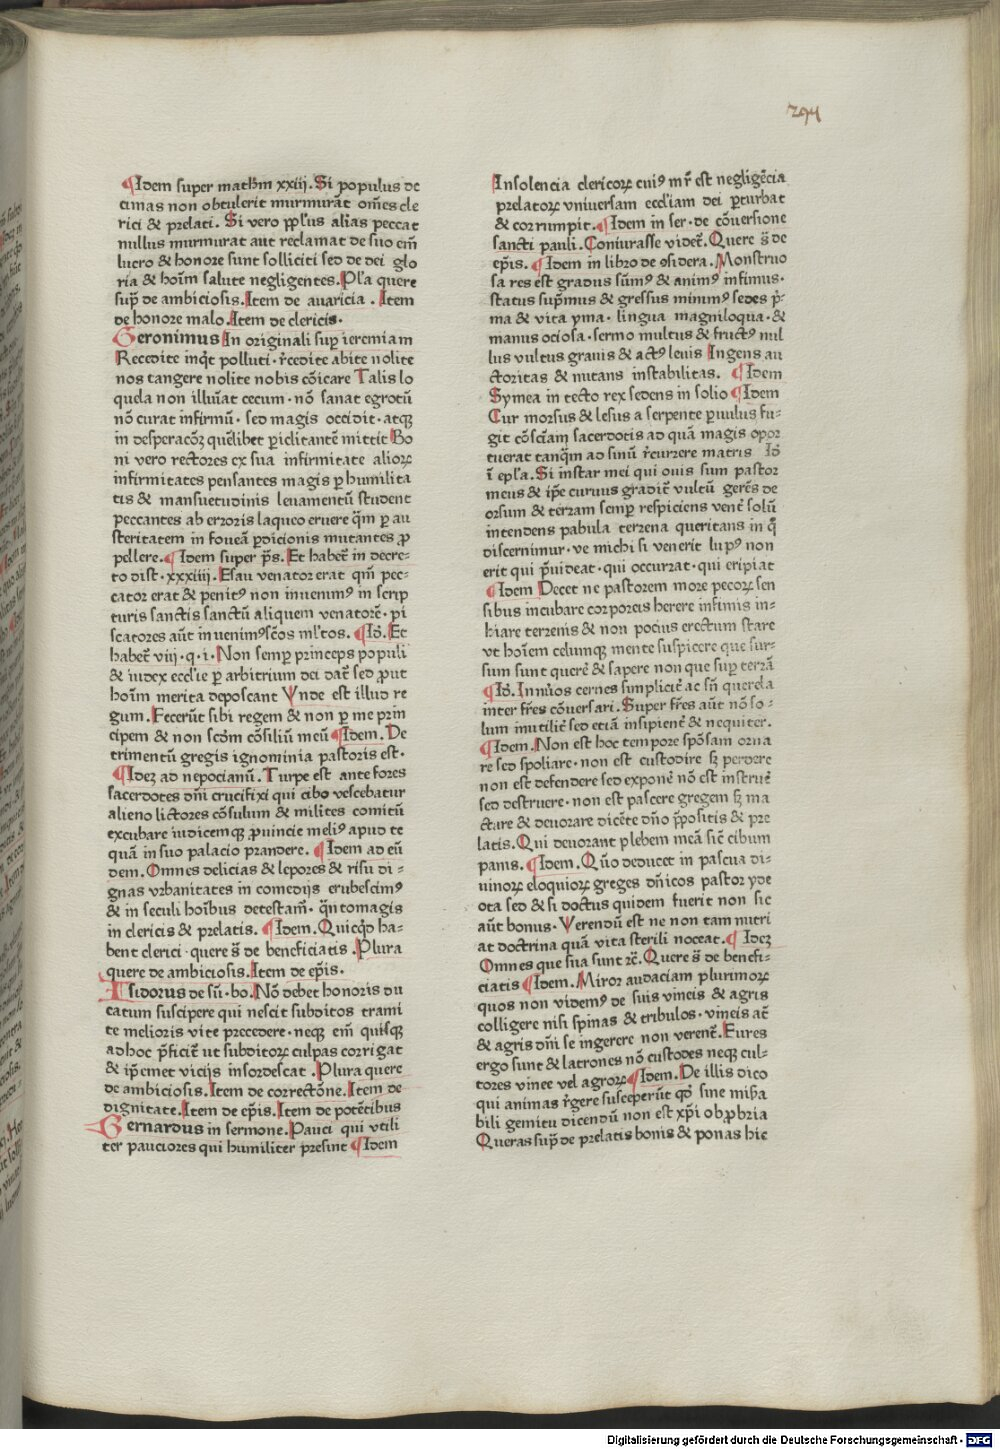 294
¶Idem super mathm̄ xxiij. Si populus de
cimas non obtulerit murmurāt om̄es cle
rici & prelati. Si vero pp̄lus alias peccat
nullus murmurat aut reclamat de suo em̄
lucro & honore sunt solliciti sed de dei glo
ria & hoīm salute negligentes. Pl̄a quere
sup̄ de ambiciosis. Item de auaricia. Item
de honore malo. Item de clericis.
Geronimus In originali sup̱ ieremiam
Recedite inq̇t polluti· r̄cedite abite nolite
nos tangere nolite nobis cōicare Talis lo
quela non illuīat cecum· nō sanat egrotū
nō curat infirmū· sed magis occidit· atqꝫ
in desperacōꝫ quēlibet p̱iclitantē mittit Bo
ni vero rectores ex sua infirmitate alioꝝ
infirmitates pensantes magis p̱ humilita
tis & mansuetudinis leuamentū student
peccantes ab erroris laqueo eruere q̄m p̱ au
steritatem in foueā p̱dicionis mutantes ꝓ
pellere. ¶Idem super p̄s. Et habet̄ in decre-
to dist· xxxiiij. Esau venator erat qm̄ pec-
cator erat & penitꝰ non inuenimꝰ in scrip
turis sanctis sanctū aliquem venatorē· pi
scatores aūt inuenimꝰ sc̄os ml̄tos. ¶Id̄. Et
habet̄ viij·q·i· Non semp̱ princeps populi
& iudex eccl̄ie p̱ arbitrium dei dat̄ sed ꝓut
hoīm merita deposcant Vnde est illud re
gum. Fecerūt sibi regem & non p̱ me prin
cipem & non scd̄m cōsiliū meū ¶Idem. De
trimentū gregis ignominia pastoris est·
¶Ideꝫ ad nepocianū. Turpe est ante fores
sacerdotes dn̄i crucifixi qui cibo vescebatur
alieno lictores cōsulum & milites comitū
excubare iudicemqꝫ ꝓuincie meliꝰ apud te
quā in suo palacio prandere. ¶Idem ad eū
dem. Omnes delicias & lepores & risu di-
gnas vrbanitates in comedijs erubescimꝰ
& in seculi hoībus detestam̄· q̄ntomagis
in clericis & prelatis. ¶Idem. Quicq̇d ha-
bent clerici· quere s̄ de beneficiatis. Plura
quere de ambiciosis. Item de ep̄is·
Isidorus de sū·bo. Nō debet honoris du
catum suscipere qui nescit subditos trami
te melioris vite precedere· neqꝫ em̄ quisqꝫ
ad hoc p̄ficit̄ ut subditoꝝ culpas corrigat
& ip̄emet vicijs insordescat. Plura quere
de ambiciosis. Item de correctōne. Item de
dignitate. Item de ep̄is. Item de potētibus
Bernardus in sermone. Pauci qui vtili
ter pauciores qui humiliter presint ¶Idem
Insolencia clericoꝝ cuiꝰ mr̄ est negligēcia
prelatoꝝ vniuersam eccl̄iam dei p̱turbat
& corrumpit. ¶Idem in ser· de cōuersione
sancti pauli. Coniurasse videt̄. Quere s̄ de
ep̄is. ¶Idem in libro de ꝯsidera. Monstruo
sa res est gradus sūmꝰ & animꝰ infimus·
status sup̄mus & gressus minimꝰ sedes p̄-
ma & vita yma· lingua magniloqua· &
manus ociosa· sermo multus & fructꝰ nul
lus vultus grauis & actꝰ leuis Ingens au
ctoritas & nutans instabilitas. ¶Idem
Symea in tecto rex sedens in solio ¶Idem
Cur morsus & lesus a serpente p̱uulus fu-
git cōsciam sacerdotis ad quā magis opor
tuerat tanq̄m ad sinū r̄currere matris Id̄
ī ep̄la. Si instar mei qui ouis sum pastor
meus & ip̄e curuus gradit̄ vultū gerēs de
orsum & terram semp̱ respiciens ventī solū
intendens pabula terrena queritans in q̄
discernimur· ve michi si venerit lupꝰ non
erit qui p̄uideat· qui occurrat· qui eripiat
¶Idem Decet ne pastorem more pecoꝝ sen
sibus incubare corporeis herere infimis in-
hiare terrenis & non pocius erectum stare
vt hoīem celumqꝫ mente suspicere que sur-
sum sunt querē & sapere non que sup̱ terrā
¶Id̄. Inn̄ios cernes simplicit̄ ac sn̄ querela
inter fr̄es cōuersari. Super fr̄es aūt nō so-
lum inutilit̄ sed etiā insipient̄ & nequiter.
¶Idem. Non est hoc tempore spōsam orna
re sed spoliare· non est custodire sꝫ perdere
non est defendere sed exponē nō est instruē
sed destruere· non est pascere gregem sꝫ ma
ctare & deuorare dicēte dn̄o p̄positis & pre
latis. Qui deuorant plebem meā sic̄ cibum
panis. ¶Idem. Quō deducet in pascua di-
uinoꝝ eloquioꝝ greges dn̄icos pastor yde
ota sed & si doctus quidem fuerit non sit
aūt bonus· Verendū est ne non tam nutri
at doctrina quā vita sterili noceat. ¶Ideꝫ
Omnes que sua sunt rc̄. Quere s̄ de benefi-
ciatis ¶Idem. Miror audaciam plurimoꝝ
quos non videmꝰ de suis vineis & agris
colligere nisi spinas & tribulos· vineis at̄
& agris dn̄i se ingerere non verent̄. Fures
ergo sunt & latrones nō custodes neqꝫ cul-
tores vinee vel agroꝝ ¶Idem. De illis dico
qui animas r̄gere susceperūt qd̕ sine misa
bili gemitu dicendū non est xp̄i obꝓbria
Queras sup̄ de prelatis bonis & ponas hic
Digitalisierung gefördert durch die Deutsche Forschungsgemeinschaft - DFG